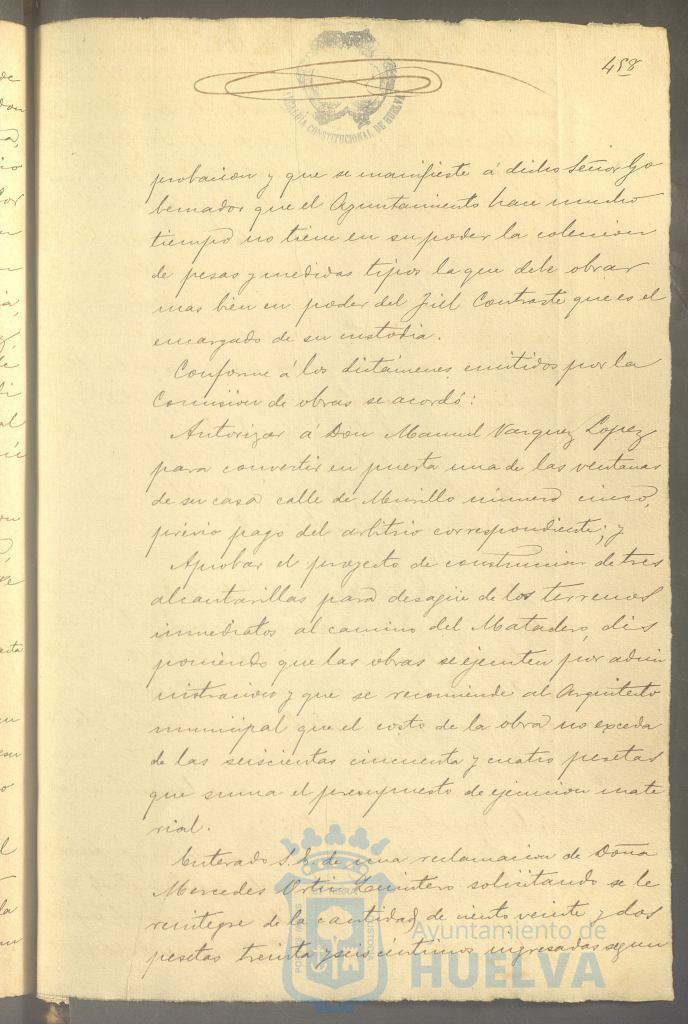 458
ALCALDIA CONSTITUCIONAL DE HUELVA
probacion y que se manifieste á dicho Señor Go
bernador que el Ayuntamiento hace mucho
tiempo no tiene en su poder la coleccion
de pesas y medidas tipos la que debe obrar
mas bien en poder del Fiel Contraste que es el
encargado de su custodia.
Conforme á los dictámenes emitidos por la
Comision de obras se acordó:
Autorizar á Don Manuel Vazquez Lopez
para convertir en puerta una de las ventanas
de su casa calle de Murillo número cinco,
previo pago del arbitrio correspondiente; y
Aprobar el proyecto de construccion de tres
alcantarillas para desagüe de los terrenos
inmediatos al camino del Matadero, dis
poniendo que las obras se ejecuten por admi
nistracion y que se recomiende al Arquitecto
municipal que el costo de la obra no exceda
de las seiscientas cincuenta y cuatro pesetas
que suma el presupuesto de ejecucion mate
rial.
Enterado S.E. de una reclamacion de Doña
Mercedes Ortiz Quintero solicitando se le
reintegre de la cantidad de ciento veinte y dos
pesetas treinta y seis céntimos ingresadas segun
Ayuntamiento de
HUELVA